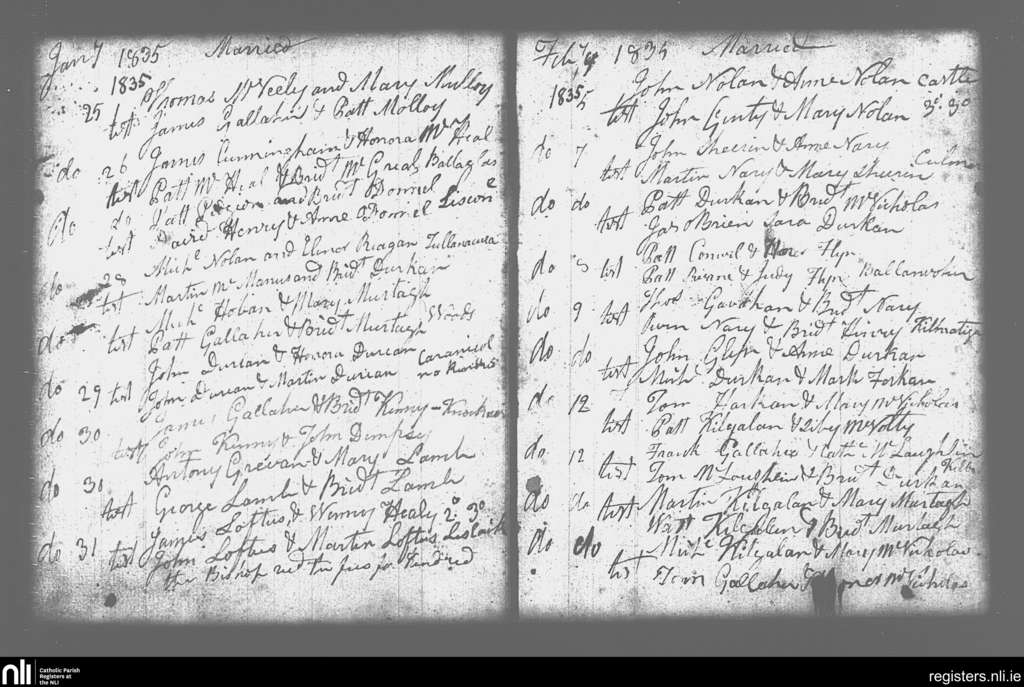 Jany 1835 Married
1835
25 Thomas McNeely and Mary Mulloy
test James Gallaher & Patt Molloy
do 26 James Cunningham & Honora McNeal
test Patt McHeal & Bridt McGreal
do do Patt and Bridt Donnel
test David Henry & Anne
do 28 Michl Nolan and Elinor Reagan Tullanacurra
test Martin McManus and Bridt Durkan
do Michl Hoban & Mary Murtagh
test Patt Gallaher & Bridt Murtagh Woods
do 29 John Durcan & Honora Durcan
test John Durcan & Martin Durcan
do 30 James Gallaher & Bridt Kinny
test John Kinny & John Dempsey
do 30 Antony Grevan & Mary Lamb
test George Lamb & Bridt Lamb
do 31 James Loftus & Winny Healy 2o 3o
test John Loftus & Martin Loftus
the Bishop the fees for Kindred
Feby 1835 Married
1835 John Nolan & Anne Nolan Castle
test John Ginty & Mary Nolan 3o 3o
do 7 John Sheerin & Anne Nary
test Martin Nary & Mary Sheerin
do do Patt Durkan & Bridt McNicholas
test Jas OBrien Sara Durkan
do 8 Patt Conwel & Flyn
test Patt & Judy Flyn
do 9 Thos Gavahan & Bridt Nary
test Owen Nary & Bridt Kilmatigue
do do John Glyn & Anne Durkan
test Michl Durkan & Mark Forkan
do 12 Tom Harkan & Mary McNicholas
test Patt Kilgalan & Biby McNolty
do 12 Frank Gallaher & Cath McLaughlin
test Tom McLoughlin & Bridt Durkan
do do Martin Kilgalan & Mary Murtagh
test Watt Kilgalan & Bridt Murtagh
do do Michl Kilgalan & Mary McNicholas
test Tom Gallaher McNicholas
nli
Catholic Parish
Registers at
the NLI
registers.nli.ie